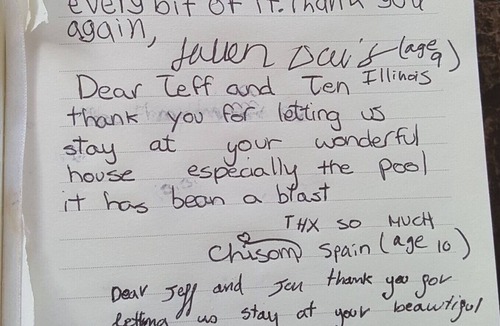 every bit of it. Thank you
again,
Jallen Davis (age 9)
Illinois
Dear Teff and Ten
thank you for letting us
stay at your wonderful
house especially the pool
it has bean a blast
THX SO MUCH
Chisom Spain (age 10)
Dear Jeff and Jen thank you for
letting us stay at your beautiful